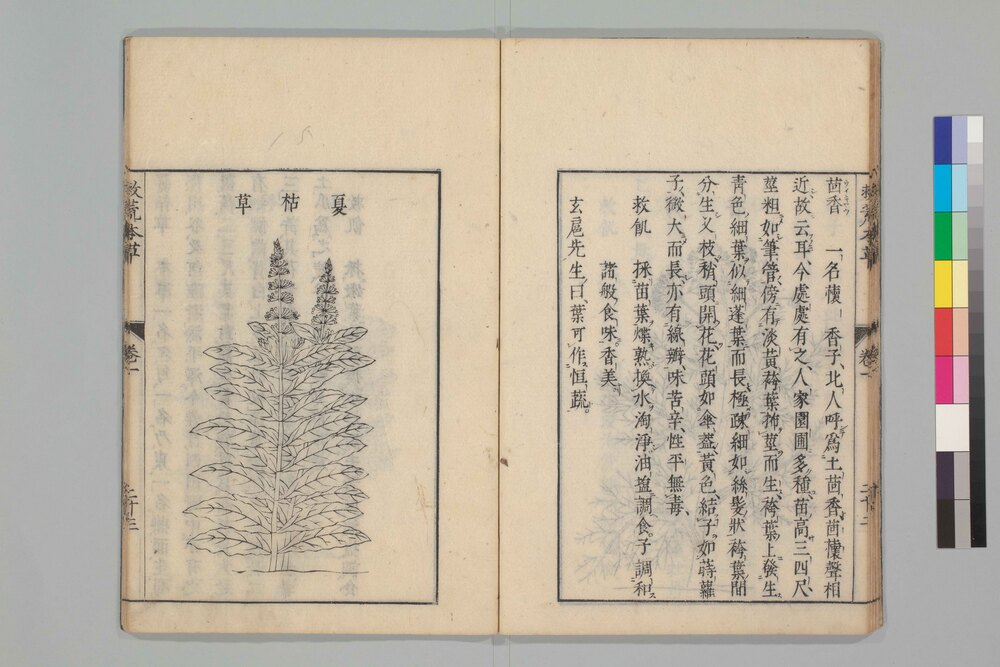 茴香 一名櫰香子北人呼爲土茴香茴櫰聲相
近故云耳今處處有之人家園圃多種苗高三四尺
莖粗如筆管傍有淡黃袴葉抪莖而生袴葉上發生
青色細葉似細蓬葉而長極疎細如絲髮狀袴葉間
分生叉枝稍頭開花花頭如傘蓋黃色結子如蒔蘿
子微大而長亦有線瓣味苦辛性平無毒
救飢 採苗葉煠熟換水淘淨油鹽調食子調和
諸般食味香美
玄扈先生曰葉可作恒蔬
夏枯草
救荒本草
卷一